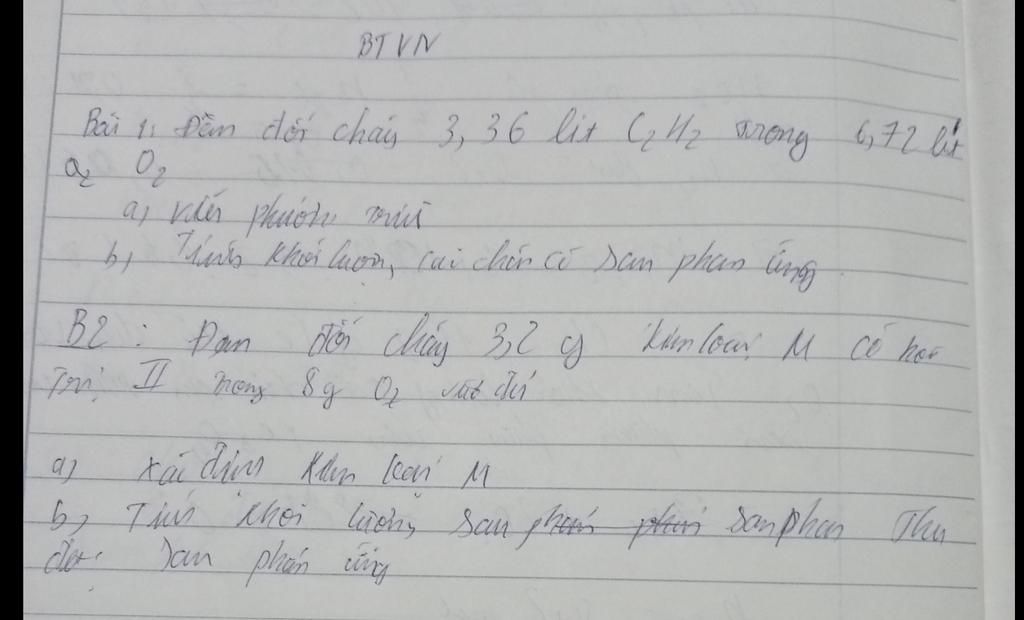 BTVN
Bài 1, Đem đốt cháy 3,36 lít C2H2 trong 6,72 lít
O2
a, viết phương trình
b, Tính khối lượng, các chất có sau phản ứng
B2: Đem đốt cháy 3,2 g kim loại M có hoá
trị II trong 8g O2 vừa đủ
a) xác định kim loại M
b, Tính khối lượng sản phẩm thu
được sau phản ứng